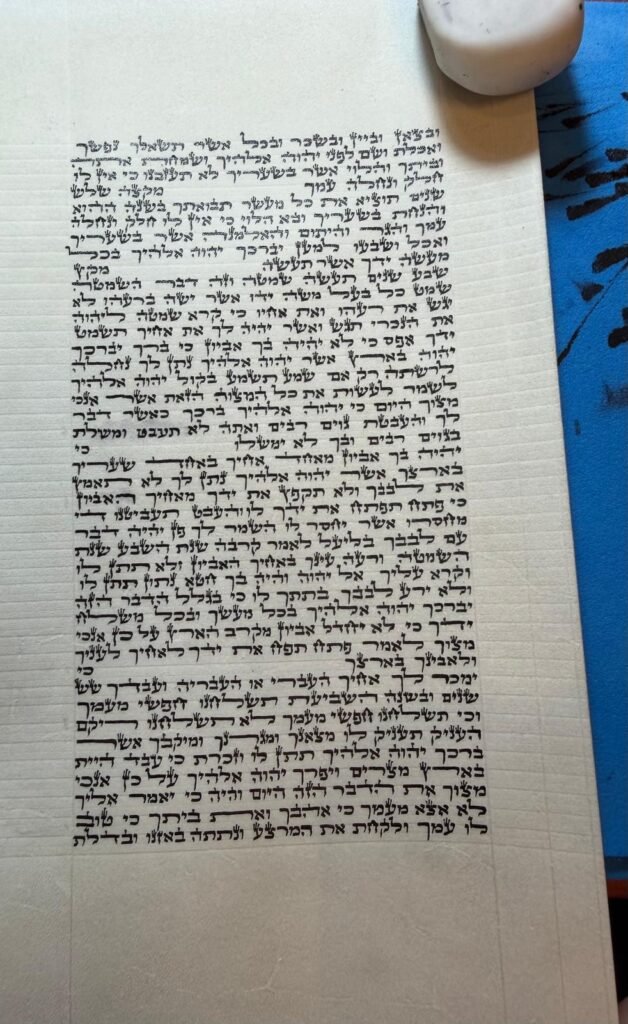 ובצאן וביין ובשכר ובכל אשר תשאלך נפשך
ואכלת שם לפני יהוה אלהיך ושמחת אתה
וביתך והלוי אשר בשעריך לא תעזבנו כי אין לו
חלק ונחלה עמך מקצה שלש
שנים תוציא את כל מעשר תבואתך בשנה ההוא
והנחת בשעריך ובא הלוי כי אין לו חלק ונחלה
עמך והגר והיתום והאלמנה אשר בשעריך
ואכלו ושבעו למען יברכך יהוה אלהיך בכל
מעשה ידך אשר תעשה מקץ
שבע שנים תעשה שמטה וזה דבר השמטה
שמוט כל בעל משה ידו אשר ישה ברעהו לא
יגש את רעהו ואת אחיו כי קרא שמטה ליהוה
את הנכרי תגש ואשר יהיה לך את אחיך תשמט
ידך אפס כי לא יהיה בך אביון כי ברך יברכך
יהוה בארץ אשר יהוה אלהיך נתן לך נחלה
לרשתה רק אם שמע תשמע בקול יהוה אלהיך
לשמר לעשות את כל המצוה הזאת אשר אנכי
מצוך היום כי יהוה אלהיך ברכך כאשר דבר
לך והעבטת גוים רבים ואתה לא תעבט ומשלת
בגוים רבים ובך לא ימשלו כי
יהיה בך אביון מאחד אחיך באחד שעריך
בארצך אשר יהוה אלהיך נתן לך לא תאמץ
את לבבך ולא תקפץ את ידך מאחיך האביון
כי פתח תפתח את ידך לו והעבט תעביטנו די
מחסרו אשר יחסר לו השמר לך פן יהיה דבר
עם לבבך בליעל לאמר קרבה שנת השבע שנת
השמטה ורעה עינך באחיך האביון ולא תתן לו
וקרא עליך אל יהוה והיה בך חטא נתון תתן לו
ולא ירע לבבך בתתך לו כי בגלל הדבר הזה
יברכך יהוה אלהיך בכל מעשך ובכל משלח
ידך כי לא יחדל אביון מקרב הארץ על כן אנכי
מצוך לאמר פתח תפתח את ידך לאחיך לעניך
ולאבינך בארצך כי
ימכר לך אחיך העברי או העבריה ועבדך שש
שנים ובשנה השביעת תשלחנו חפשי מעמך
וכי תשלחנו חפשי מעמך לא תשלחנו ריקם
העניק תעניק לו מצאנך ומגרנך ומיקבך אשר
ברכך יהוה אלהיך תתן לו וזכרת כי עבד היית
בארץ מצרים ויפדך יהוה אלהיך על כן אנכי
מצוך את הדבר הזה היום והיה כי יאמר אליך
לא אצא מעמך כי אהבך ואת ביתך כי טוב
לו עמך ולקחת את המרצע ונתתה באזנו ובדלת